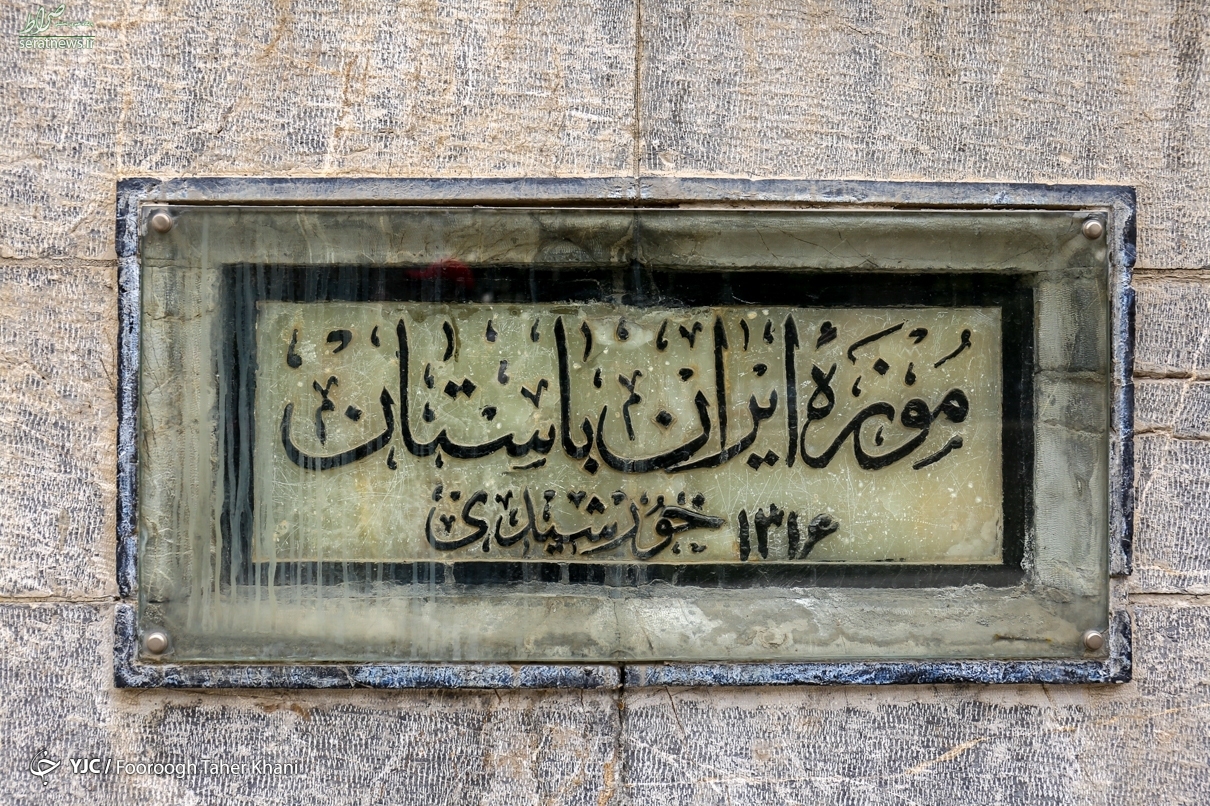 صراط
seratnews.ir
موزهٔ ایران باستان
۱۳۱۶ خورشیدی
YJC / Fooroogh Taher Khani